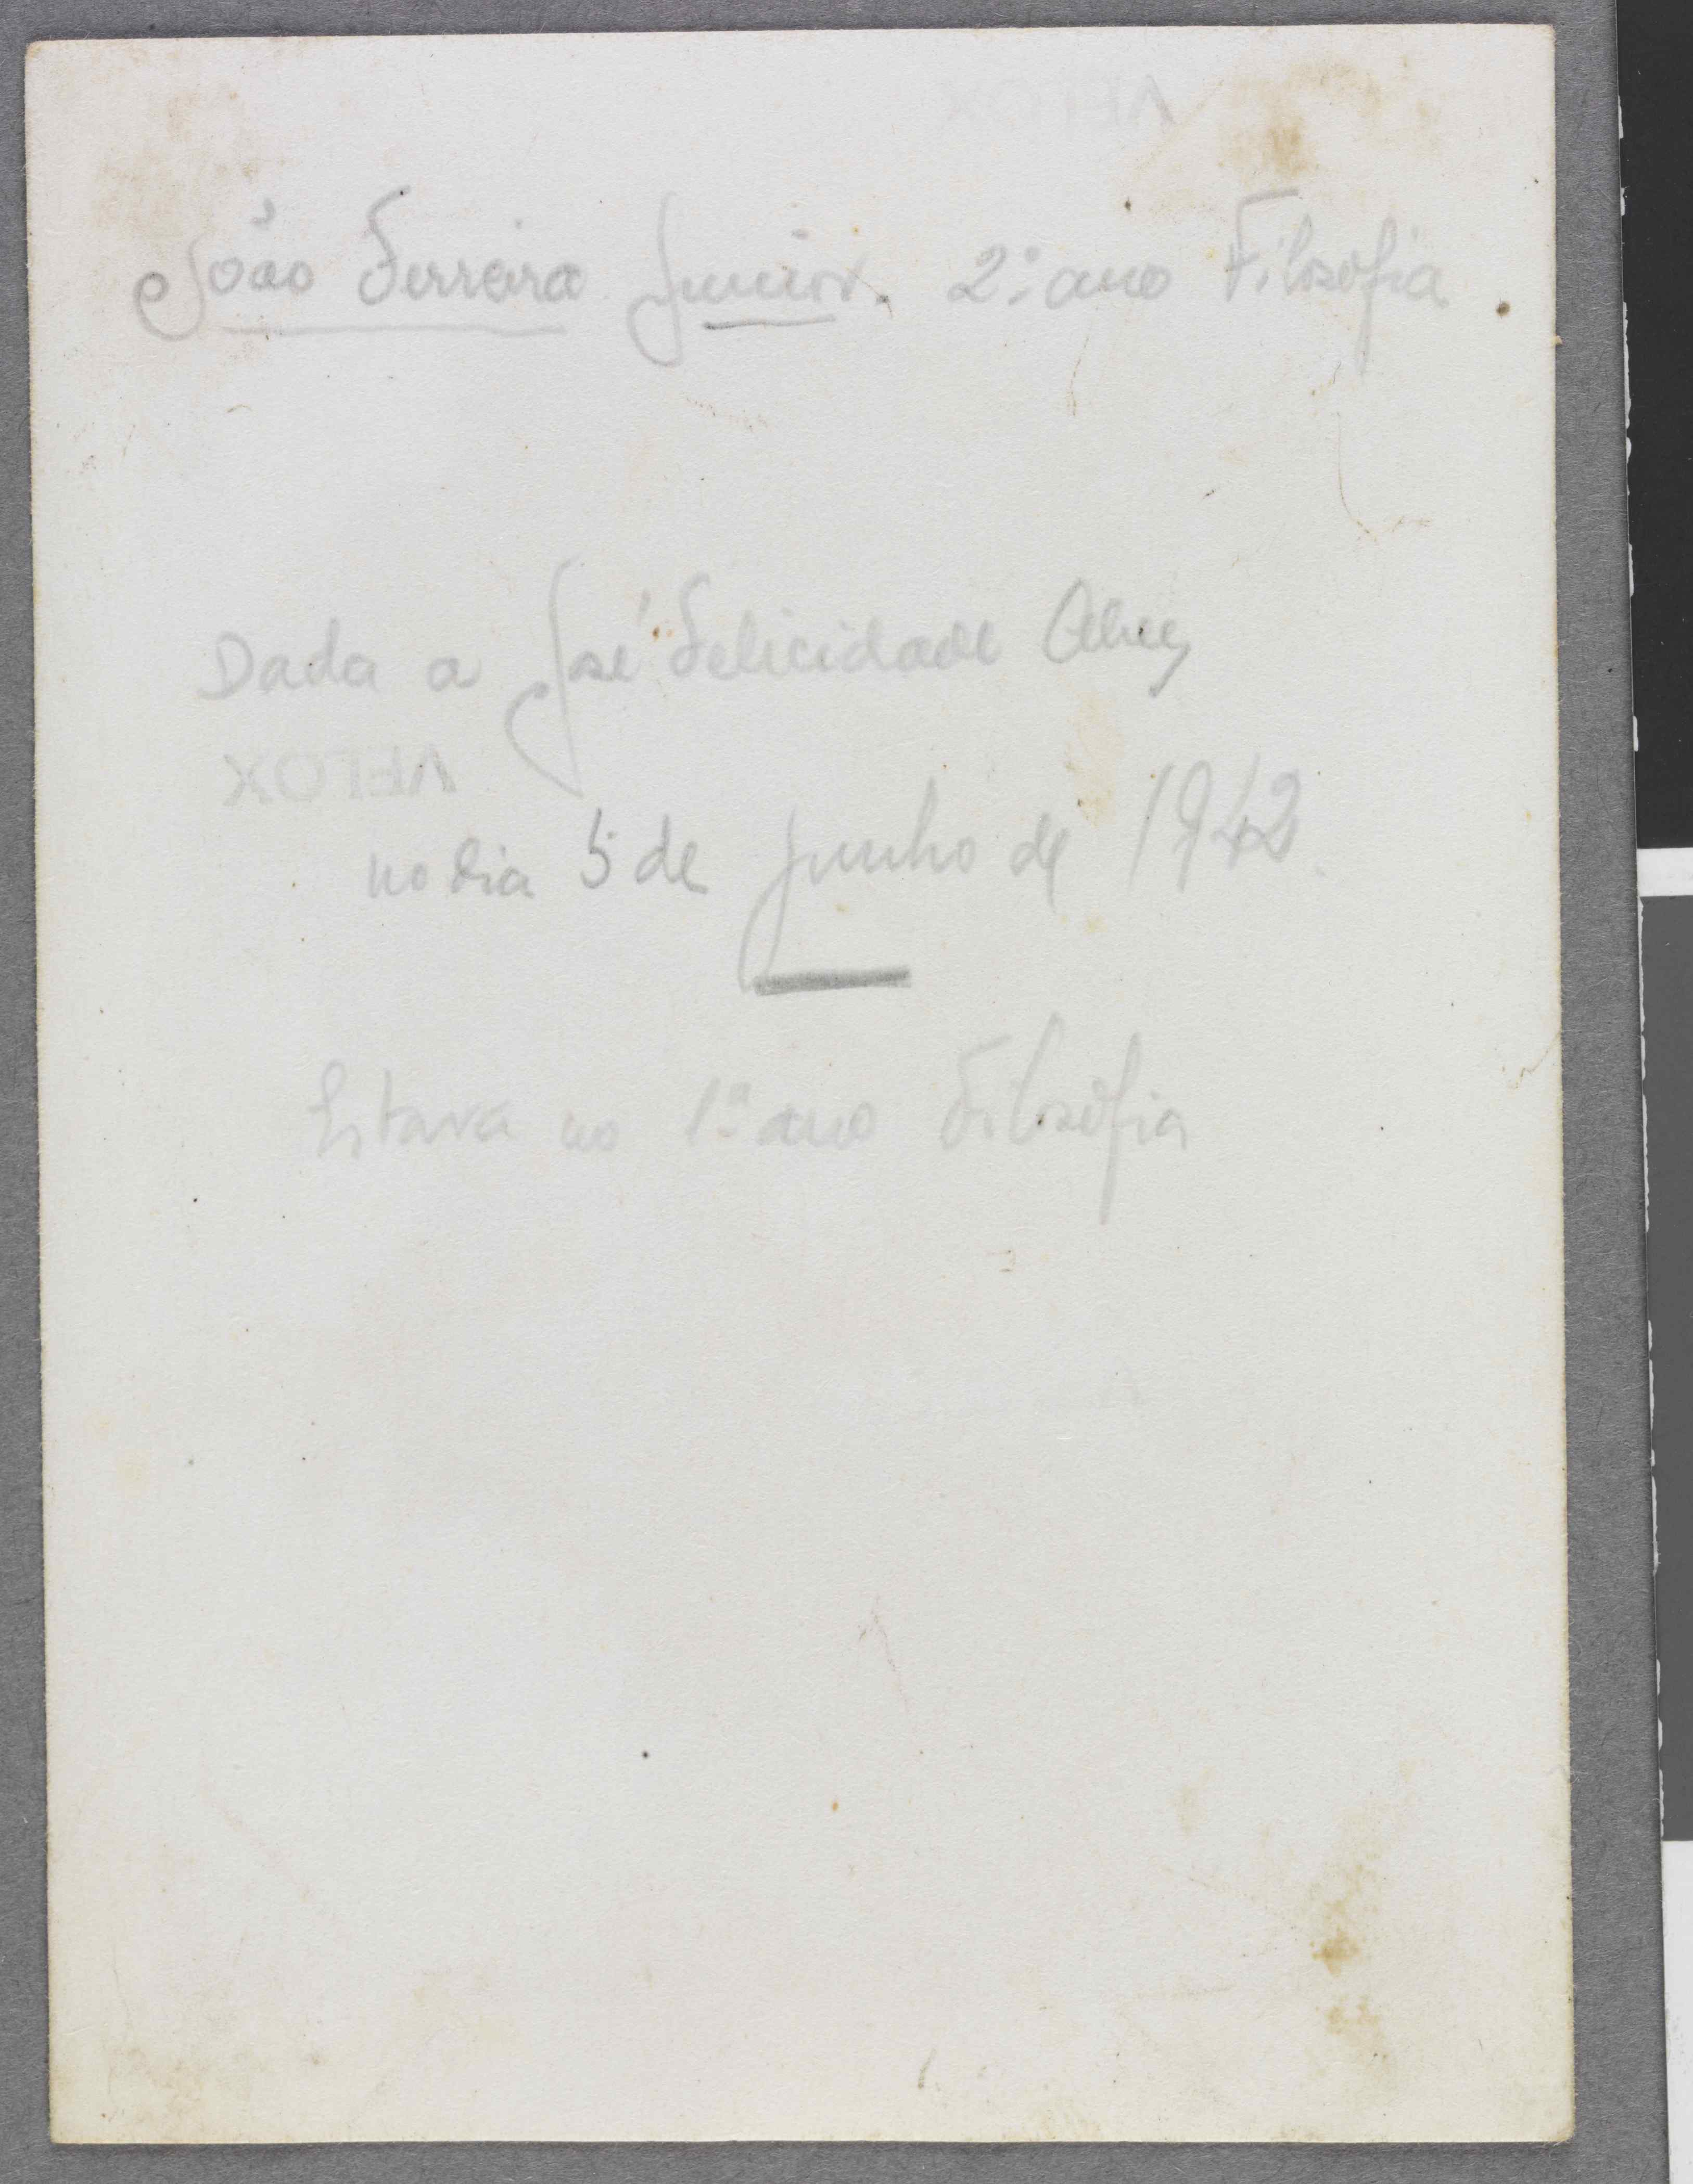 VELOX
João Ferreira Junior. 2º ano Filosofia
Dada a José Felicidade Alves
VELOX
no dia 5 de Junho de 1942.
Estava no 1º ano Filosofia